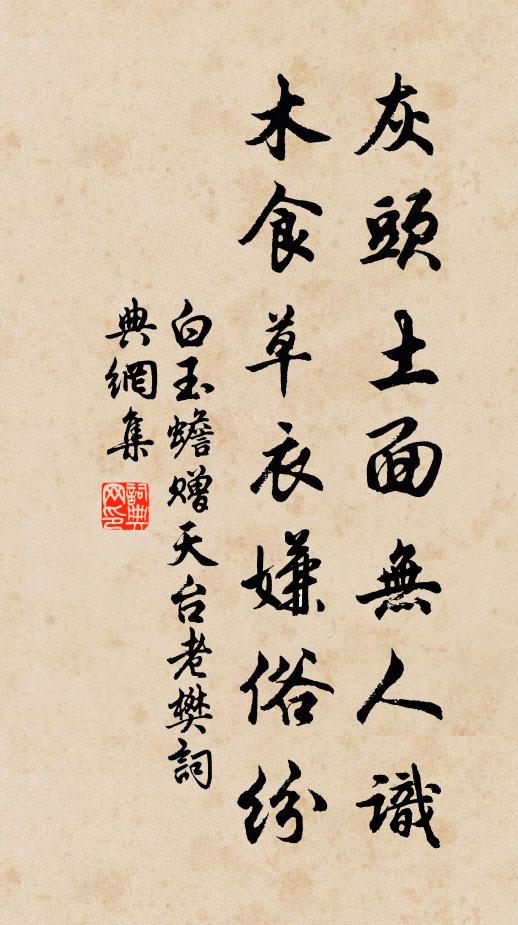 灰頭土面無人識
木食草衣嫌俗紛
白玉蟾贈天台老樊詞
典網集
詞典
网印